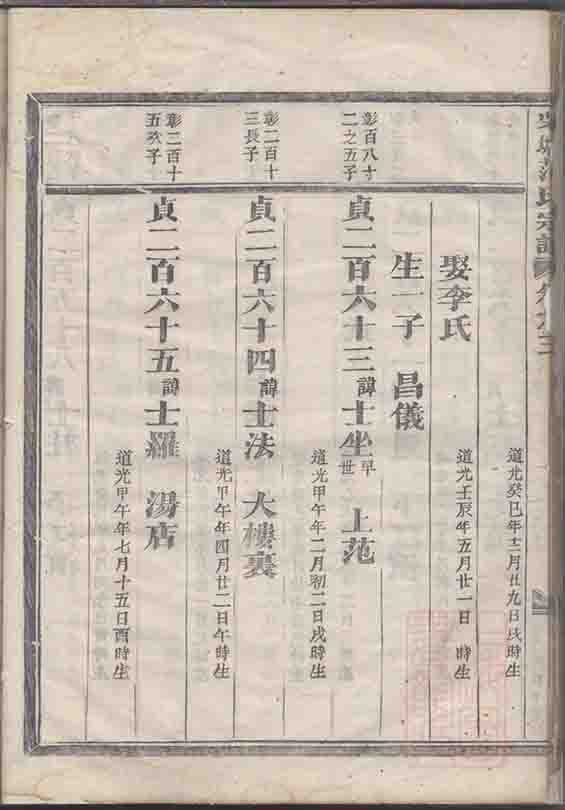 范氏宗譜
道光癸巳年十二月廿九日戌時生
娶李氏
道光壬辰年五月廿一日 時生
生一子 昌儀
彰百八十二之五子
貞二百六十三諱士坐早世 上范
道光甲午年二月初二日戌時生
彰二百十三長子
貞二百六十四諱士法 大樓裏
道光甲午年四月廿二日午時生
彰二百十五次子
貞二百六十五諱士羅 湯店
道光甲午年七月十五日酉時生